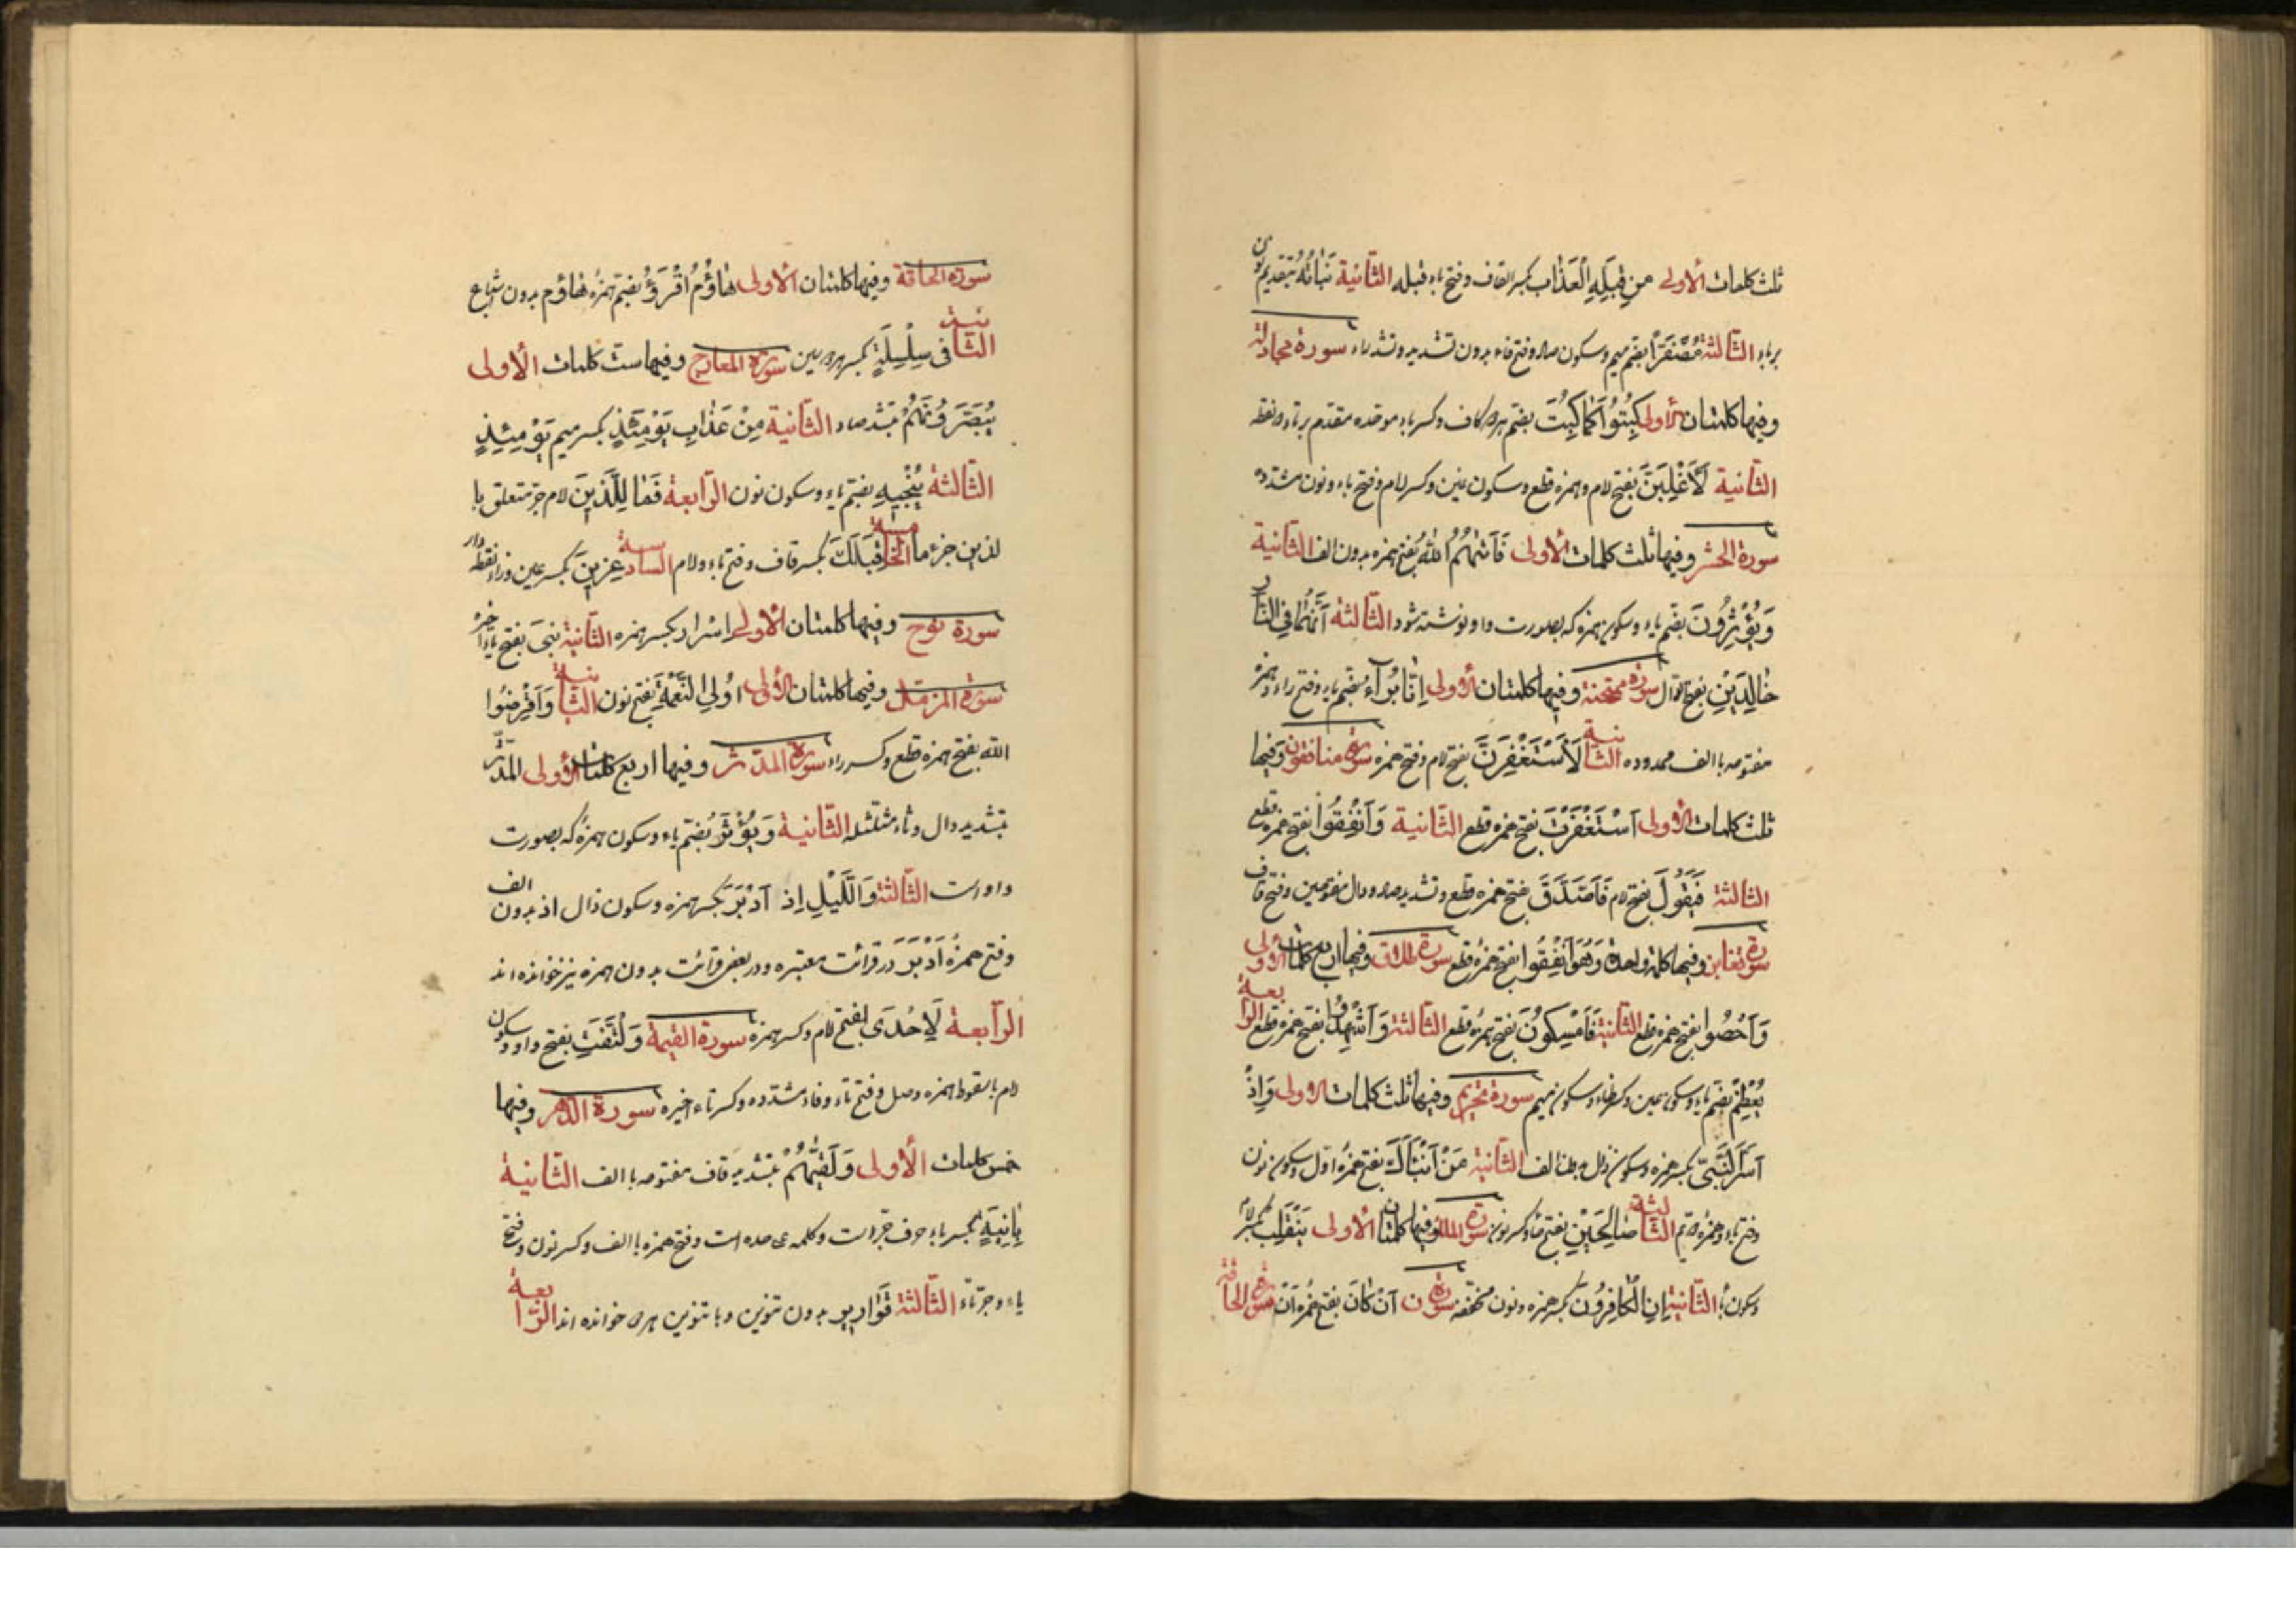 ثلث کلمات الأولی من قِبَلِهِ الْعَذاب بکسر القاف و فتح باء قبله الثّانیة نَبَائُهُ بتقدیم نون
بر باء الثّالثة مُصْفَرًّا بضمّ میم و سکون صاد و فتح فاء بدون تشدید و تشدید راء سورة مجادلة
و فیها کلمتان الأولی کُبِتُوا کَما کُبِتَ بضمّ هر دو کاف و کسر باء موحّده مقدّم بر تاء دو نقطه
الثّانیة لَأَغْلِبَنَّ بفتح لام و همزه قطع و سکون غین و کسر لام و فتح باء و نون مشدّده
سورة الحشر و فیها ثلث کلمات الأولی فَأَتٰهُمُ اللّٰهُ بفتح همزه بدون الف الثّانیة
وَیُؤْثِرُونَ بضمّ یاء و سکون همزه که بصورت واو نوشته شود الثّالثة أَنَّهُما فِی النّار
خٰالِدَیْنِ بفتح دال سورة ممتحنة و فیها کلمتان الأولی إِنّا بُرَآءُ بضمّ باء و فتح راء و همزه
مفتوحه با الف ممدوده الثّانیة لَأَسْتَغْفِرَنَّ بفتح لام و فتح همزه سورة منافقون و فیها
ثلث کلمات الأولی أَسْتَغْفَرْتَ بفتح همزه قطع الثّانیة وَأَنْفِقُوا بفتح همزه قطع
الثّالثة فَیَقُولَ بفتح لام فَأَصَّدَّقَ بفتح همزه قطع و تشدید صاد و دال مفتوحین و فتح قاف
سورة تغابن و فیها کلمة واحدة وَهُوَ أَنْفِقُوا بفتح همزه قطع سورة طلاق و فیها اربع کلمات الأولی
وَأَحْصُوا بفتح همزه قطع الثّانیة فَأَمْسِکُوهُنَّ بفتح همزه قطع الثّالثة وَأَشْهِدُوا بفتح همزه قطع الرّابعة
یُعْظِمْ بضمّ یاء و سکون عین و کسر ظاء و سکون میم سورة تحریم و فیها ثلث کلمات الأولی وَإِذْ
أَسَرَّ النَّبِیُّ بکسر همزه و سکون ذال بدون الف الثّانیة مَنْ أَنْبَأَکَ بفتح همزهٔ اوّل و سکون نون
و فتح باء و همزه دوّم الثّالثة صٰالِحَیْنِ بفتح حاء و کسر نون سورة الملک و فیها کلمتان الأولی یَنْقَلِبْ بکسر لام
و سکون باء الثّانیة إِنِ الْکٰافِرُونَ بکسر همزه و نون مخفّفه سورة ن أَنْ کٰانَ بفتح همزه أَنْ سورة الحاقّة
سورة الحاقّة و فیها کلمتان الأولی هٰاؤُمُ اقْرَؤُ بضمّ همزهٔ هٰاؤم بدون اشباع
الثّانیة فی سِلْسِلَةٍ بکسر هر دو سین سورة المعارج و فیها ست کلمات الأولی
یُبَصَّرُونَهُمْ بتشدید صاد الثّانیة مِنْ عَذٰابِ یَوْمِئِذٍ بکسر میم یَوْمِئِذٍ
الثّالثة یُنْجِیهِ بضمّ یاء و سکون نون الرّابعة فَمٰا لِلَّذینَ لام جر متعلق با
لذین جزء ما الخامسة قِبَلَکَ بکسر قاف و فتح باء و لام السادسة عِزینَ بکسر عین و زاء نقطه دار
سورة نوح و فیها کلمتان الأولی إِسْرار بکسر همزه الثّانیة بَیْتِیَ بفتح یاء اخیر
سورة المزمّل و فیها کلمتان الأولی اُولِی النَّعْمَةِ بفتح نون الثّانیة وَأَقْرِضُوا
اللّٰه بفتح همزه قطع و کسر راء سورة المدّثر و فیها اربع کلمات الأولی المدّثّر
بتشدید دال و ثاء مثلّثه الثّانیة وَیُؤْثَرُ بضمّ یاء و سکون همزه که بصورت
واو است الثّالثة وَاللَّیْلِ إِذ أَدْبَرَ بکسر همزه و سکون ذال اذ بدون الف
و فتح همزهٔ أَدْبَرَ در قرائت معتبره و در بعض قرائت بدون همزه نیز خوانده اند
الرّابعة لَإِحْدَی بفتح لام و کسر همزه سورة القیمة وَلْتَفَّتِ بفتح واو و سکون
لام باسقوط همزه وصل و فتح تاء و فاء مشدّده و کسر تاء اخیره سورة الدّهر و فیها
خمس کلمات الأولی وَلَقّٰهُمْ بتشدید قاف مفتوحه با الف الثّانیة
بِآنِیَةٍ بکسر باء حرف جرّ است و کلمه علی حده است و فتح همزه با الف و کسر نون و فتح
یاء و جرّ تاء الثّالثة قَوٰاریر بدون تنوین و با تنوین هر دو خوانده اند الرّابعة